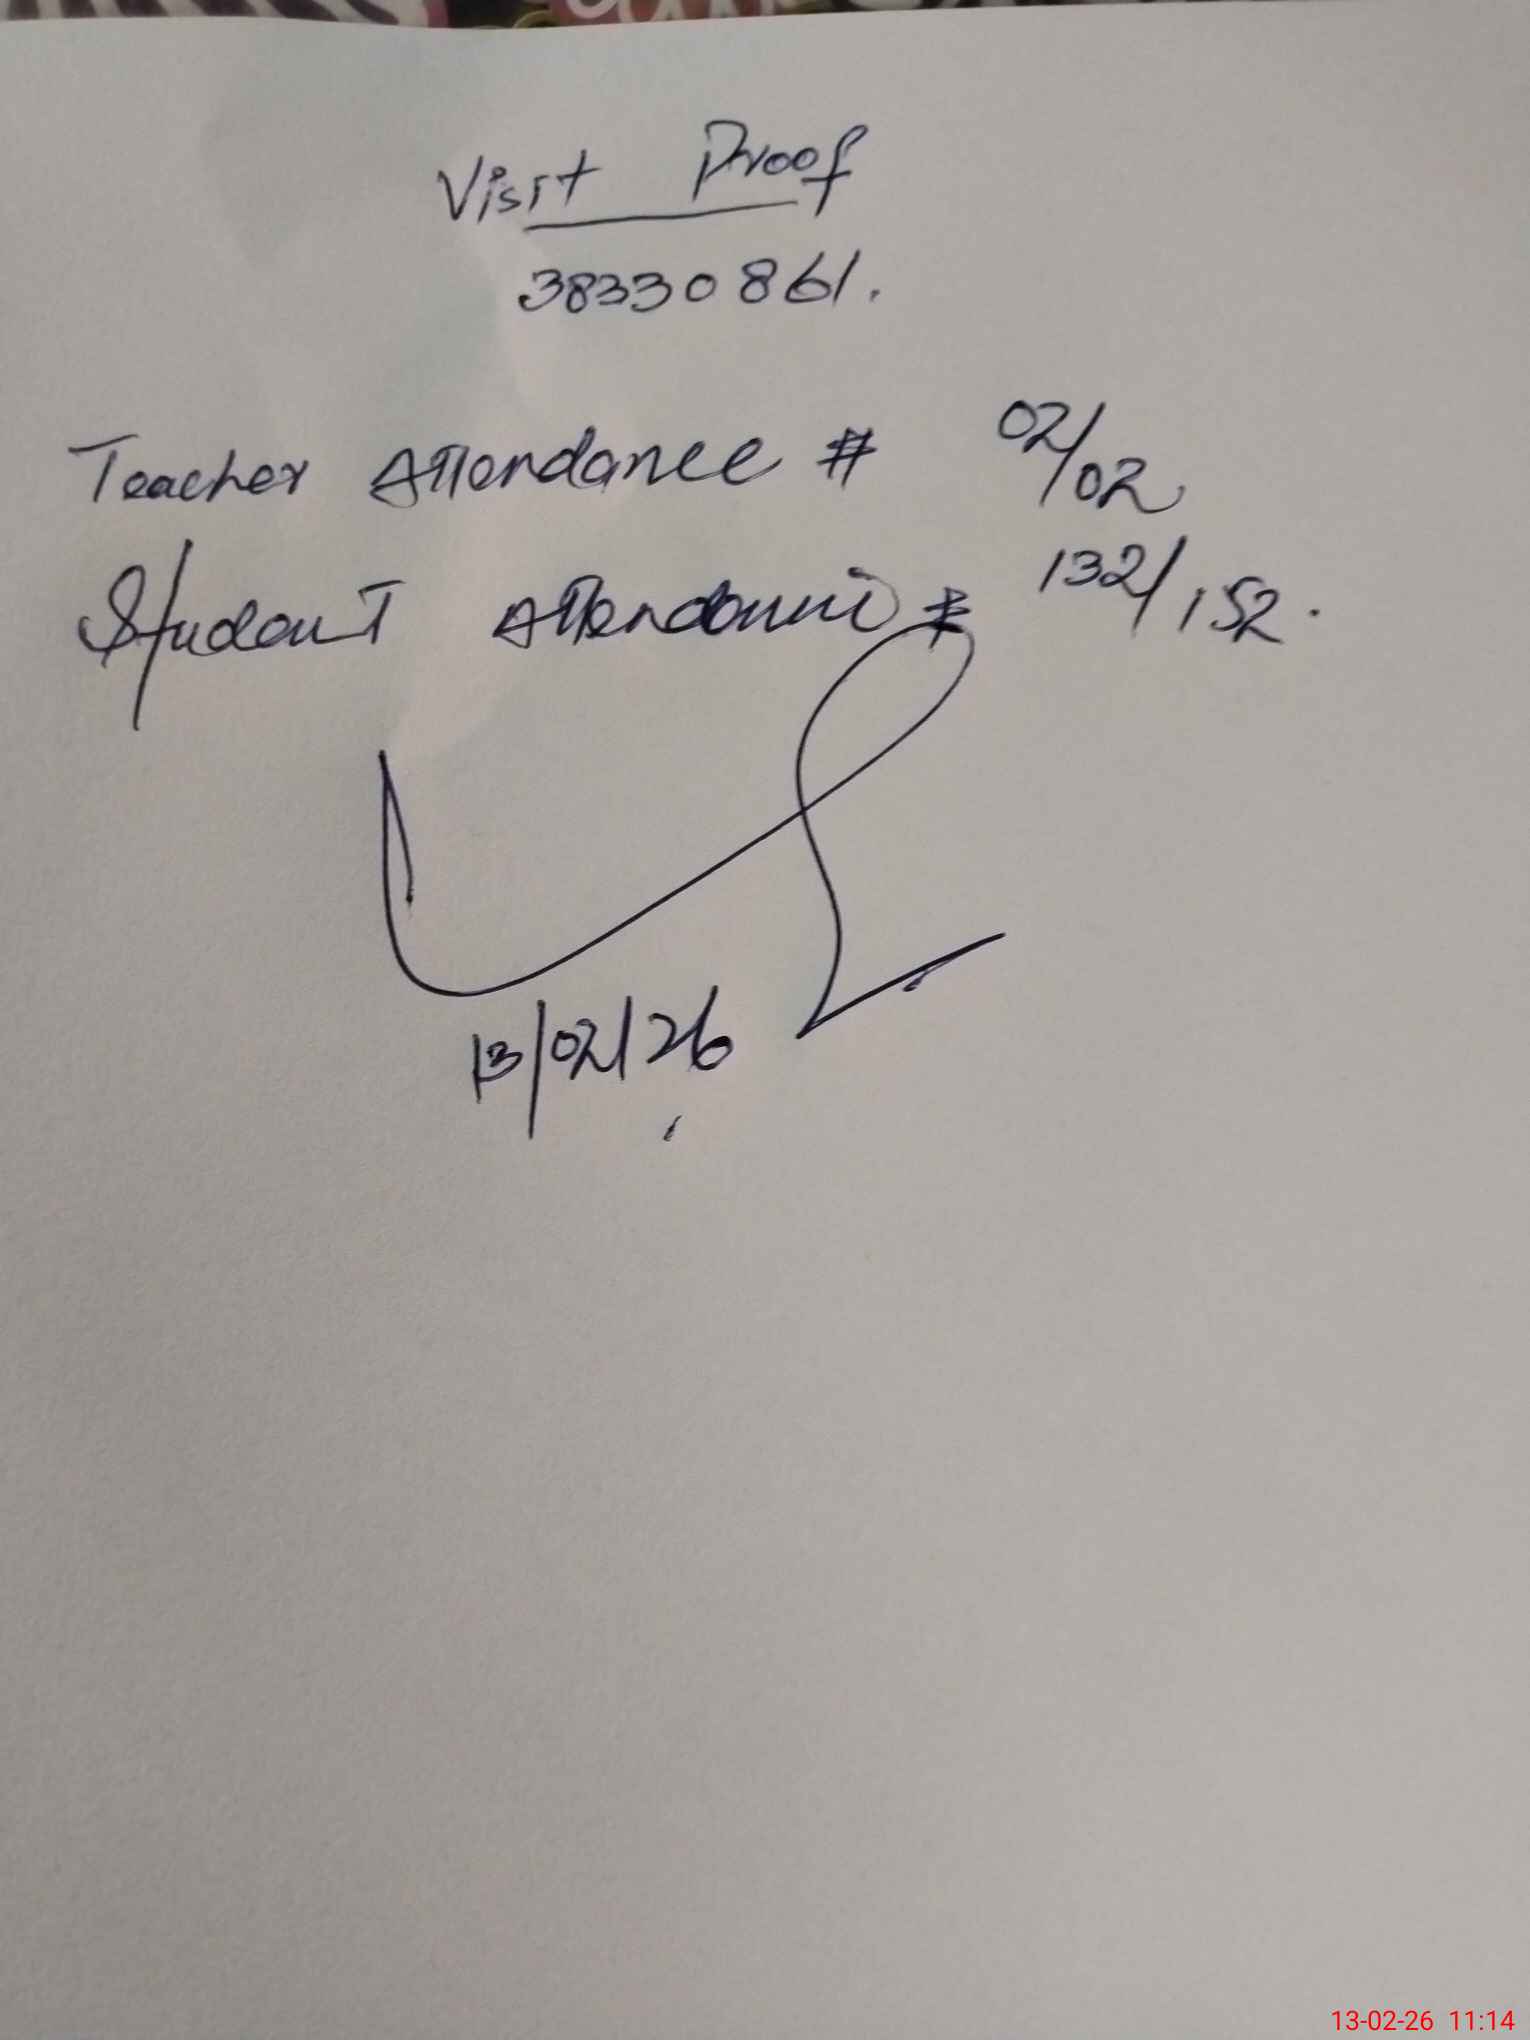 Visit Proof
38330861.
Teacher Attendance # 02/02
Student Attendance # 132/152.
13/02/26
13-02-26 11:14